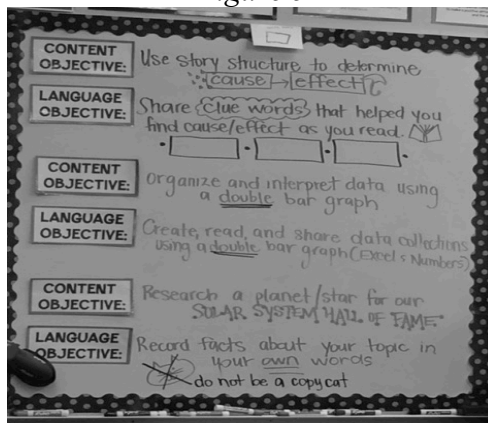 CONTENT OBJECTIVE: Use story structure to determine
cause → effect
LANGUAGE OBJECTIVE: Share clue words that helped you
find cause/effect as you read.
CONTENT OBJECTIVE: Organize and interpret data using
a double bar graph
LANGUAGE OBJECTIVE: Create, read, and share data collections
using a double bar graph (Excel & Numbers)
CONTENT OBJECTIVE: Research a planet/star for our
SOLAR SYSTEM HALL OF FAME.
LANGUAGE OBJECTIVE: Record facts about your topic in
your own words
do not be a copycat